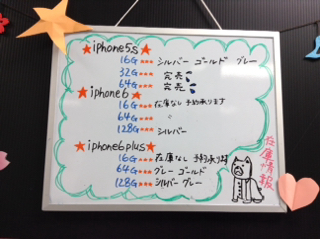 ★iphone5s★
16G★★★ シルバー ゴールド グレー
32G★★★ 完売
64G★★★ 完売
★iphone6★
16G★★★ 在庫なし 予約承ります
64G★★★ 〃
128G★★★ シルバー
★iphone6plus★
16G★★★ 在庫なし 予約承ります
64G★★★ グレー ゴールド
128G★★★ シルバー グレー
在庫情報